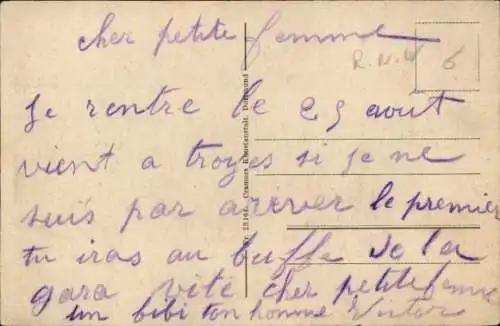 cher petite femme
R.N.W 6
Je rentre le 25 aout
vient a troyes si je ne
suis par arever le premier
tu iras au buffe de la
gara vite cher petite femme
un bibi ton homme Victor
23 162. Cramers Kunstanstalt. Dortmund